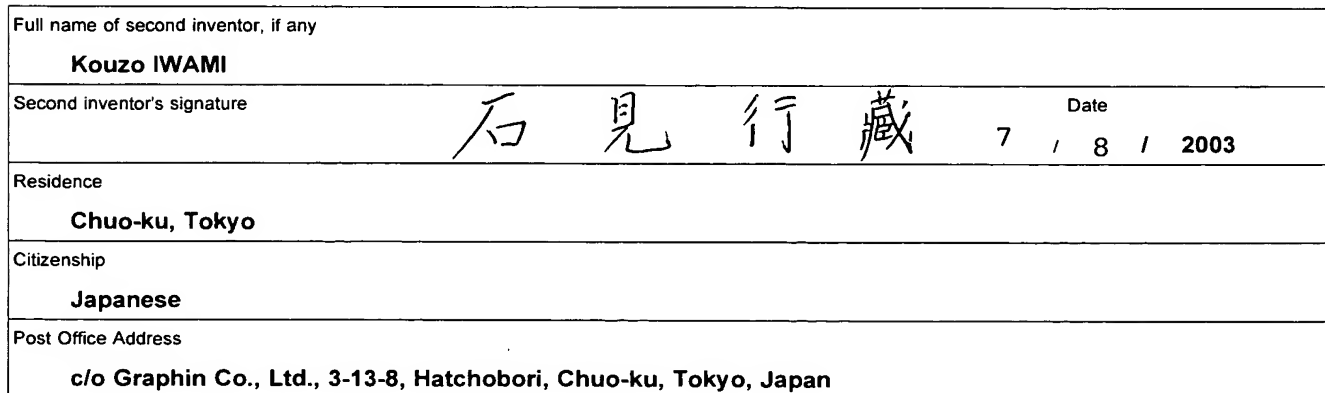 Full name of second inventor, if any
Kouzo IWAMI
Second inventor's signature 石見行藏 Date
7 / 8 / 2003
Residence
Chuo-ku, Tokyo
Citizenship
Japanese
Post Office Address
c/o Graphin Co., Ltd., 3-13-8, Hatchobori, Chuo-ku, Tokyo, Japan